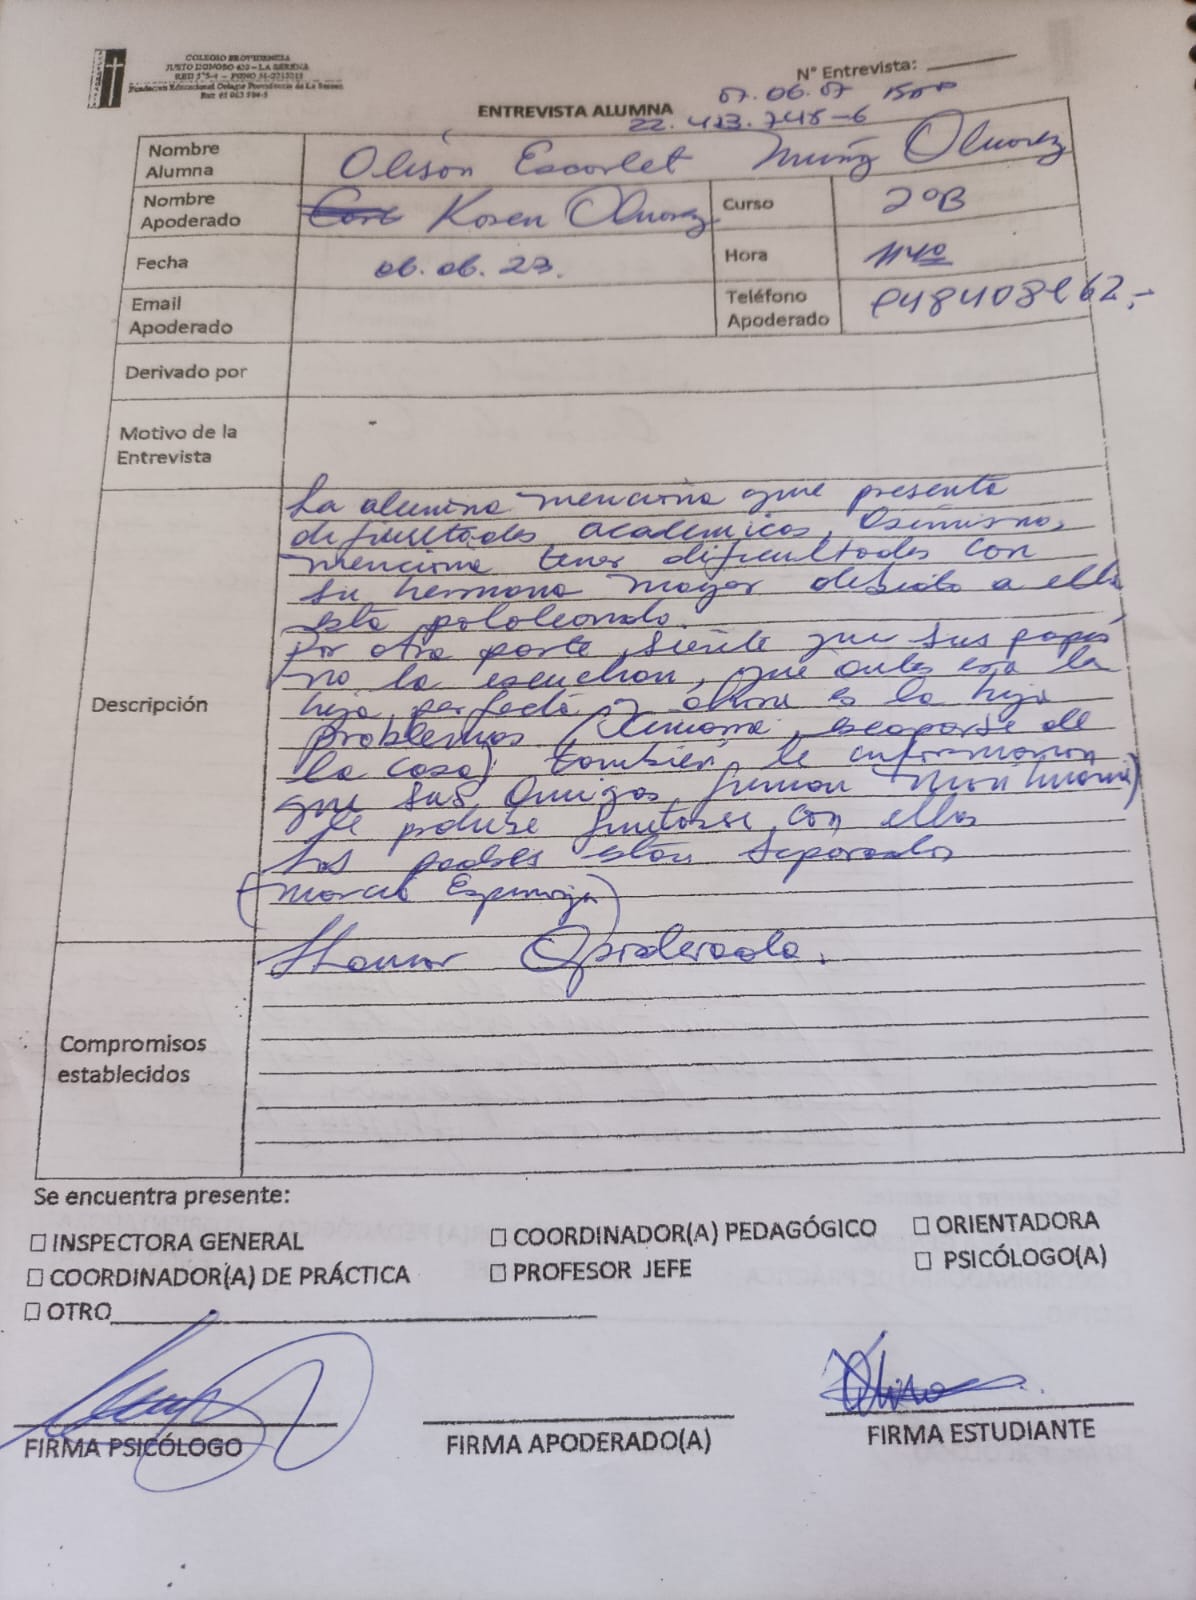 COLEGIO PROVIDENCIA
JUSTO DONOSO 420 – LA SERENA
Fundación Educacional Colegio Providencia de La Serena
N° Entrevista:
ENTREVISTA ALUMNA
22.423.748-6
Nombre Alumna
Escarlet Muñoz
Nombre Apoderado
Karen
Curso
2ºB
Fecha
06.06.23.
Hora
Email Apoderado
Teléfono Apoderado
Derivado por
Motivo de la Entrevista
Descripción
La alumna menciona que presenta
dificultades académicas, asimismo,
menciona tener dificultades con
su hermana mayor debido a ella
está pololeando.
Por otra parte, siente que sus papás
no la escuchan, que antes era la
hija perfecta y ahora es la hija
problemas (, escaparse de
la casa) también le informaron
que sus amigos fuman marihuana)
le produce juntarse con ellos
Sus padres están separados
(Espinoza)
Compromisos establecidos
Llamar Apoderada.
Se encuentra presente:
☐ INSPECTORA GENERAL
☐ COORDINADOR(A) PEDAGÓGICO
☐ ORIENTADORA
☐ COORDINADOR(A) DE PRÁCTICA
☐ PROFESOR JEFE
☐ PSICÓLOGO(A)
☐ OTRO
FIRMA PSICÓLOGO
FIRMA APODERADO(A)
FIRMA ESTUDIANTE